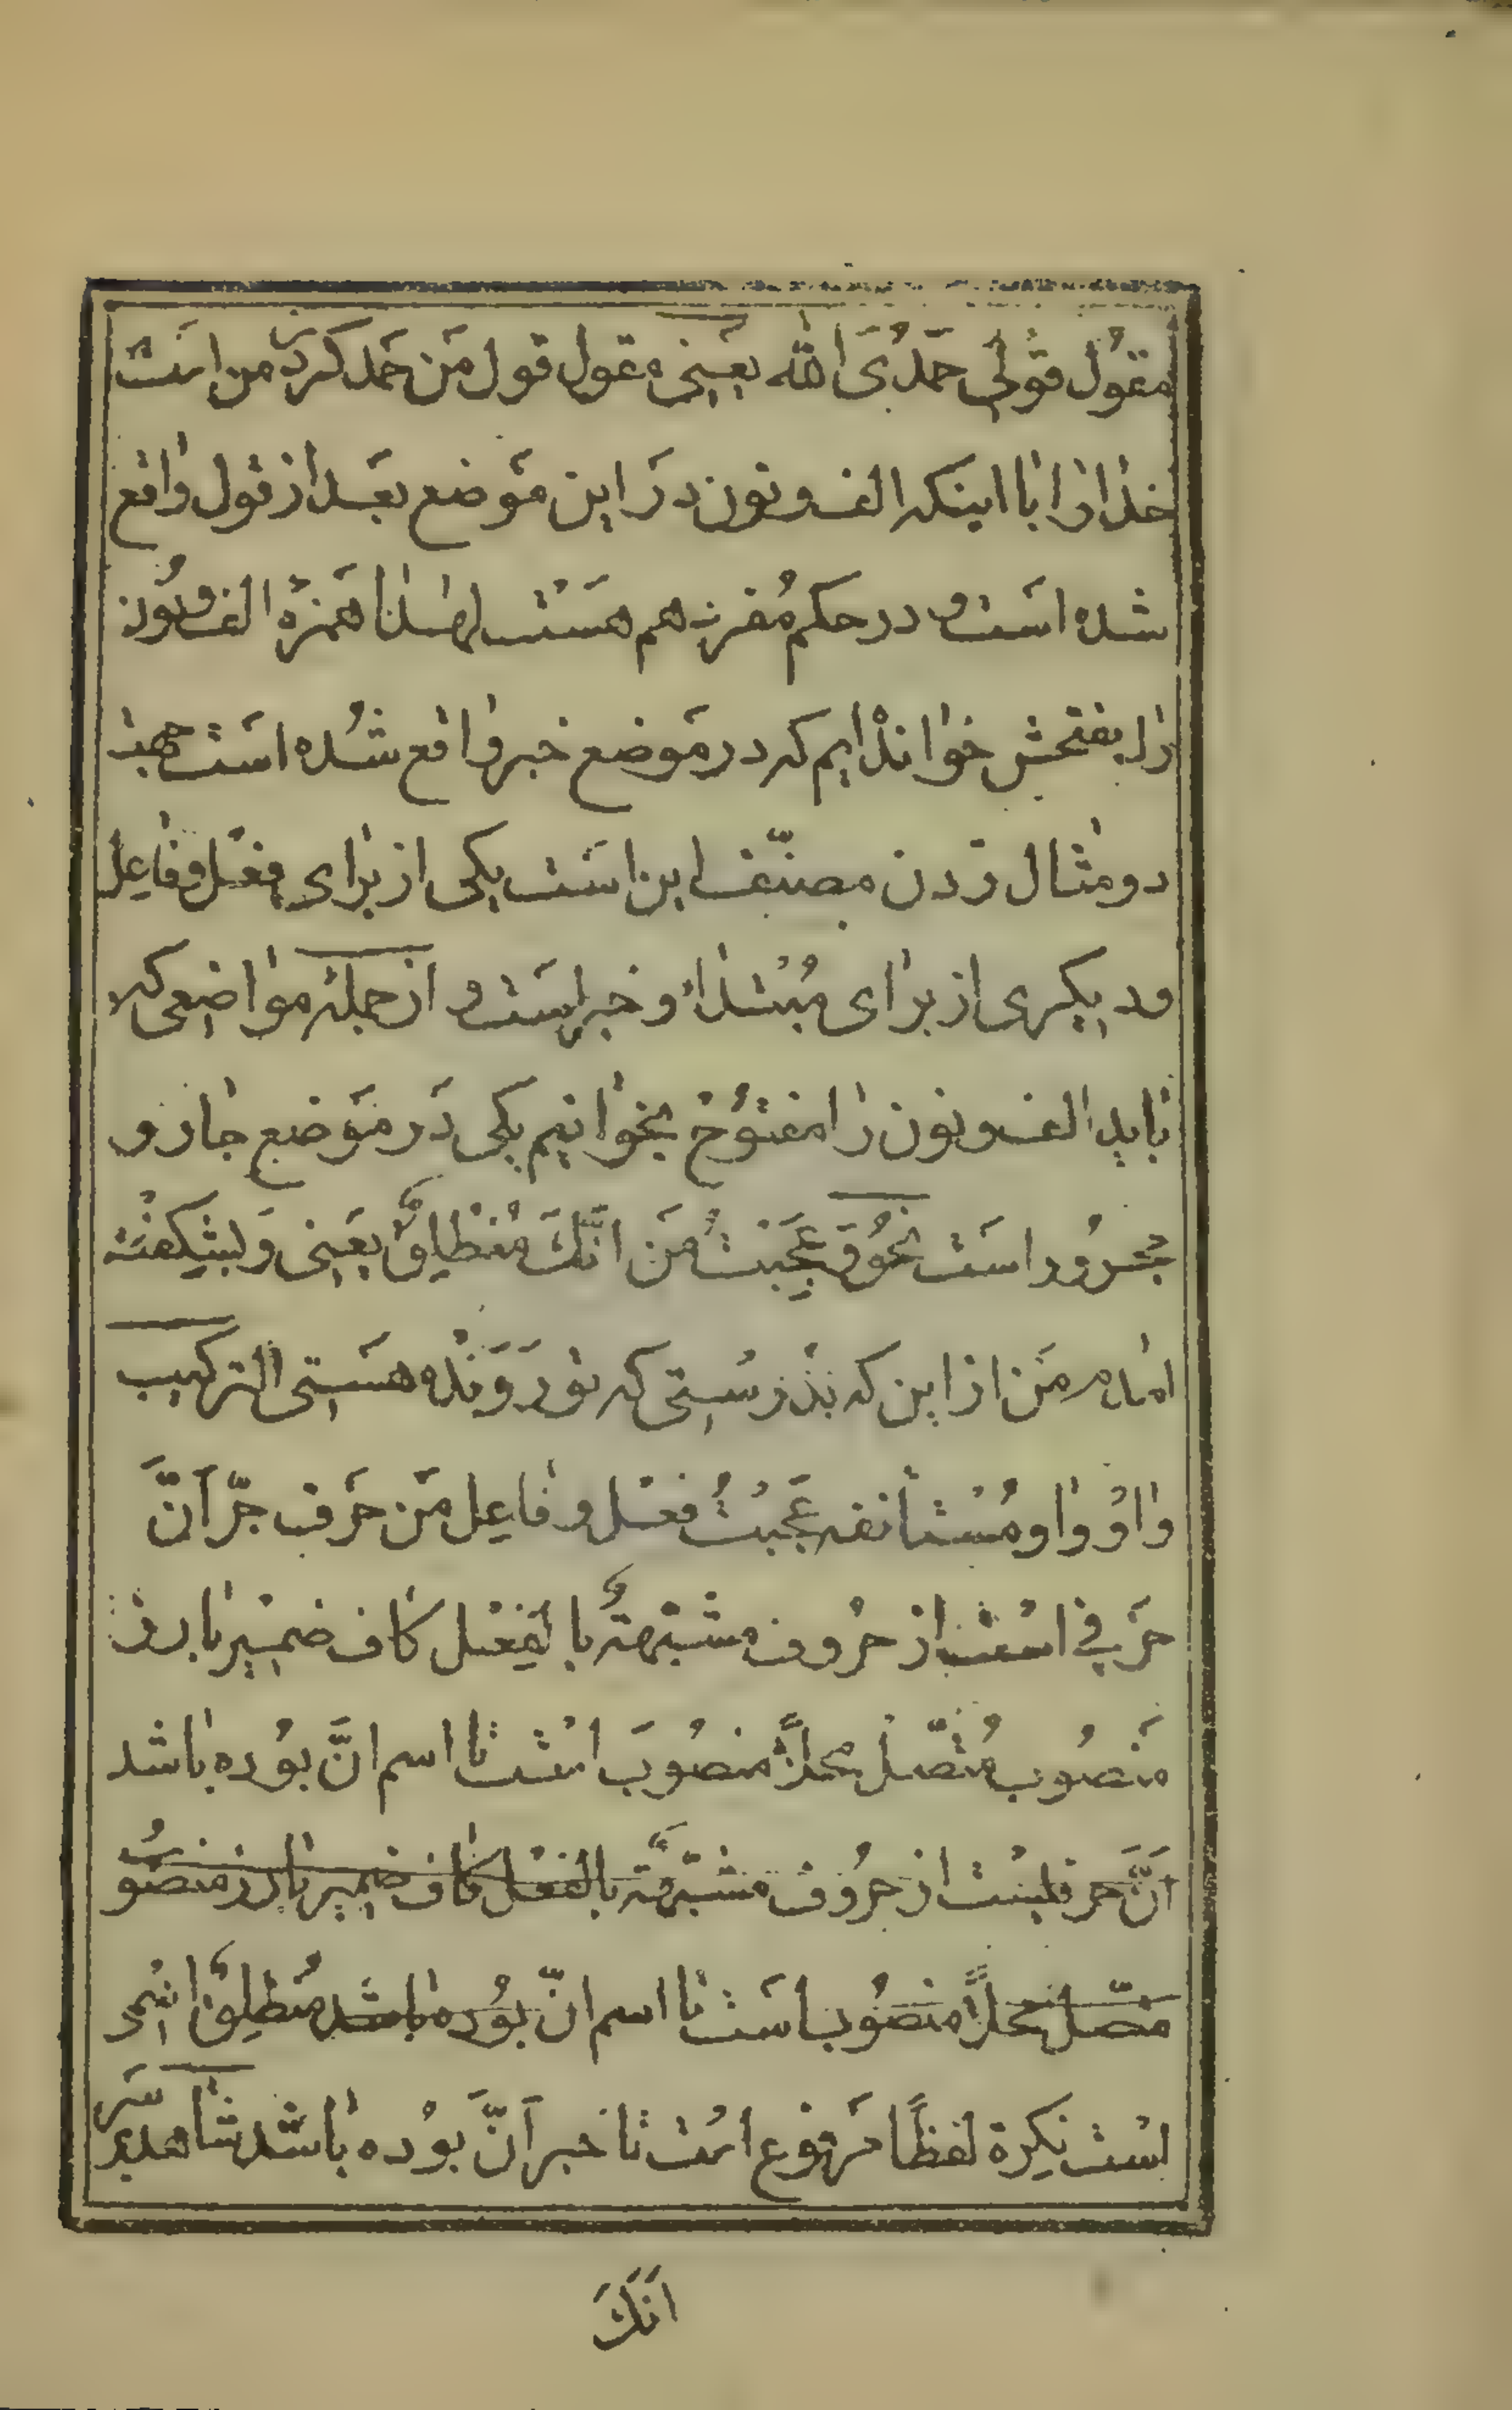 مقوُل قوُلی حَمدُیَ الله یعَنِی مقول قول مَن حَمد کردن من اسَت
خدا را با اینکه الف و نون دَر این مَوضع بعَد از قول واقع
شده اسَت و در حکم مُفرد هم هَستْ لهذا همزهٔ الف و نُون
را بفتحش خوانده‌ایم که در مَوضع خبر واقع شُده اسَت جهت
دو مثال زدن مصنّف این اسَت یکی از برای فعْل و فاعِل
و دیگری از برای مُبْتداء و خبر است و از جمله مواضعی که
باید الف و نون را مفتوُح بخوانیم یکی دَر مَوضع جار و
مجرُور اسَت نحُو وَ عَجِبْتُ مَن انَّكَ مُنْطلِقٌ یعَنِی وَ بشِکفته
امده‌ام مَن از این که بدرسُتی که تو رَوَنْده هسَتی الترکیب
واوُ واو مُستأنفه عَجِبْتُ فعْل و فاعِل مَن حَرف جرّ اَنَّ
حَرفی اسْت از حرُوف مشبّهةٌ بالفِعْل کاف ضمیْر بارز
مَنصُوب مُتّصل محلاًّ منصُوبَ اسْت تا اسم انَّ بوُده باشد
اَنَّ حرفیسْت از حرُوف مشبّهَة بالفعْل کاف ضمیر بارز منصوُبُ
متّصل محلاًّ منصُوب اسَت تا اسم انّ بوُده باشد مُنطلِقٌ اسْمی
اسْت نکِرة لفظًا مَرفوع اسْت تا خبر اَنَّ بوُده باشَد شاهد بر سَر
اَنَكَ